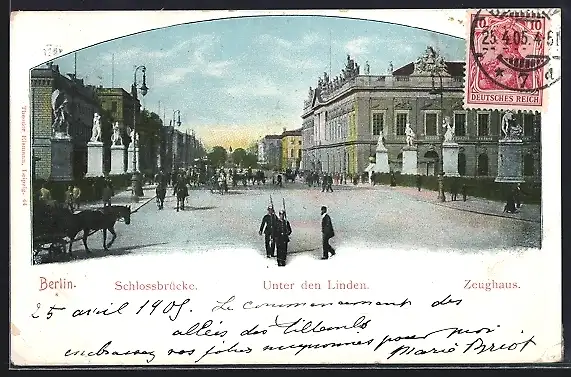 10 10
25.4.05.4-5N
DEUTSCHES REICH
Theodor Eismann, Leipzig. 44
Berlin. Schlossbrücke. Unter den Linden. Zeughaus.
25 avril 1905. Le commencement des
allées des Tilleuls
embrassez vos folies mignonnes pour moi
Marie Briot